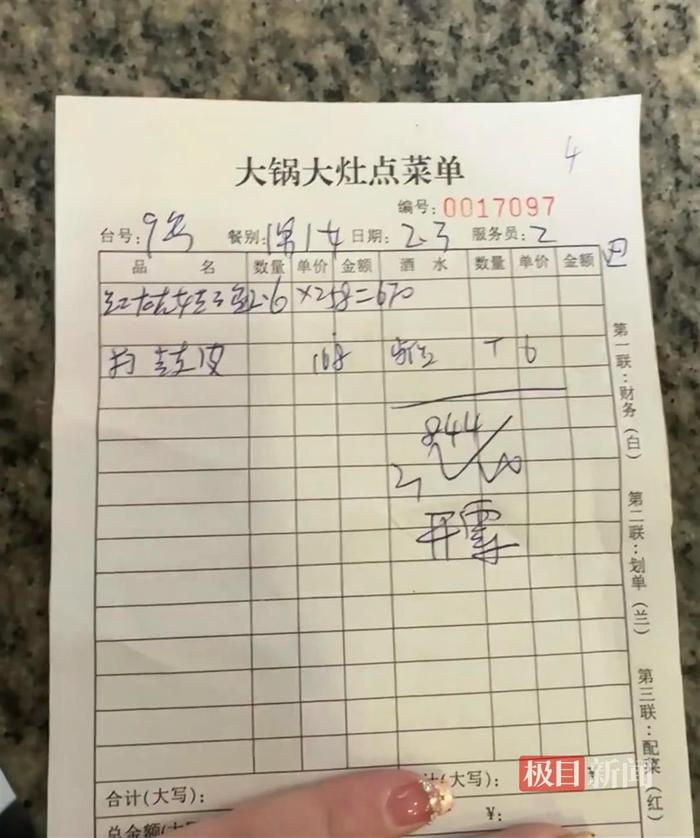 4
大锅大灶点菜单
编号: 0017097
台号: 9号 餐别: 日期: 2.3 服务员: 2
品 名 数量 单价 金额 酒 水 数量 单价 金额
2.6 ×258=670
168 6
844
开票
第一联:财务(白)
第二联:划单(兰)
第三联:配菜(红)
合计(大写): 计(大写): ¥
总金额(大 ¥:
极目新闻